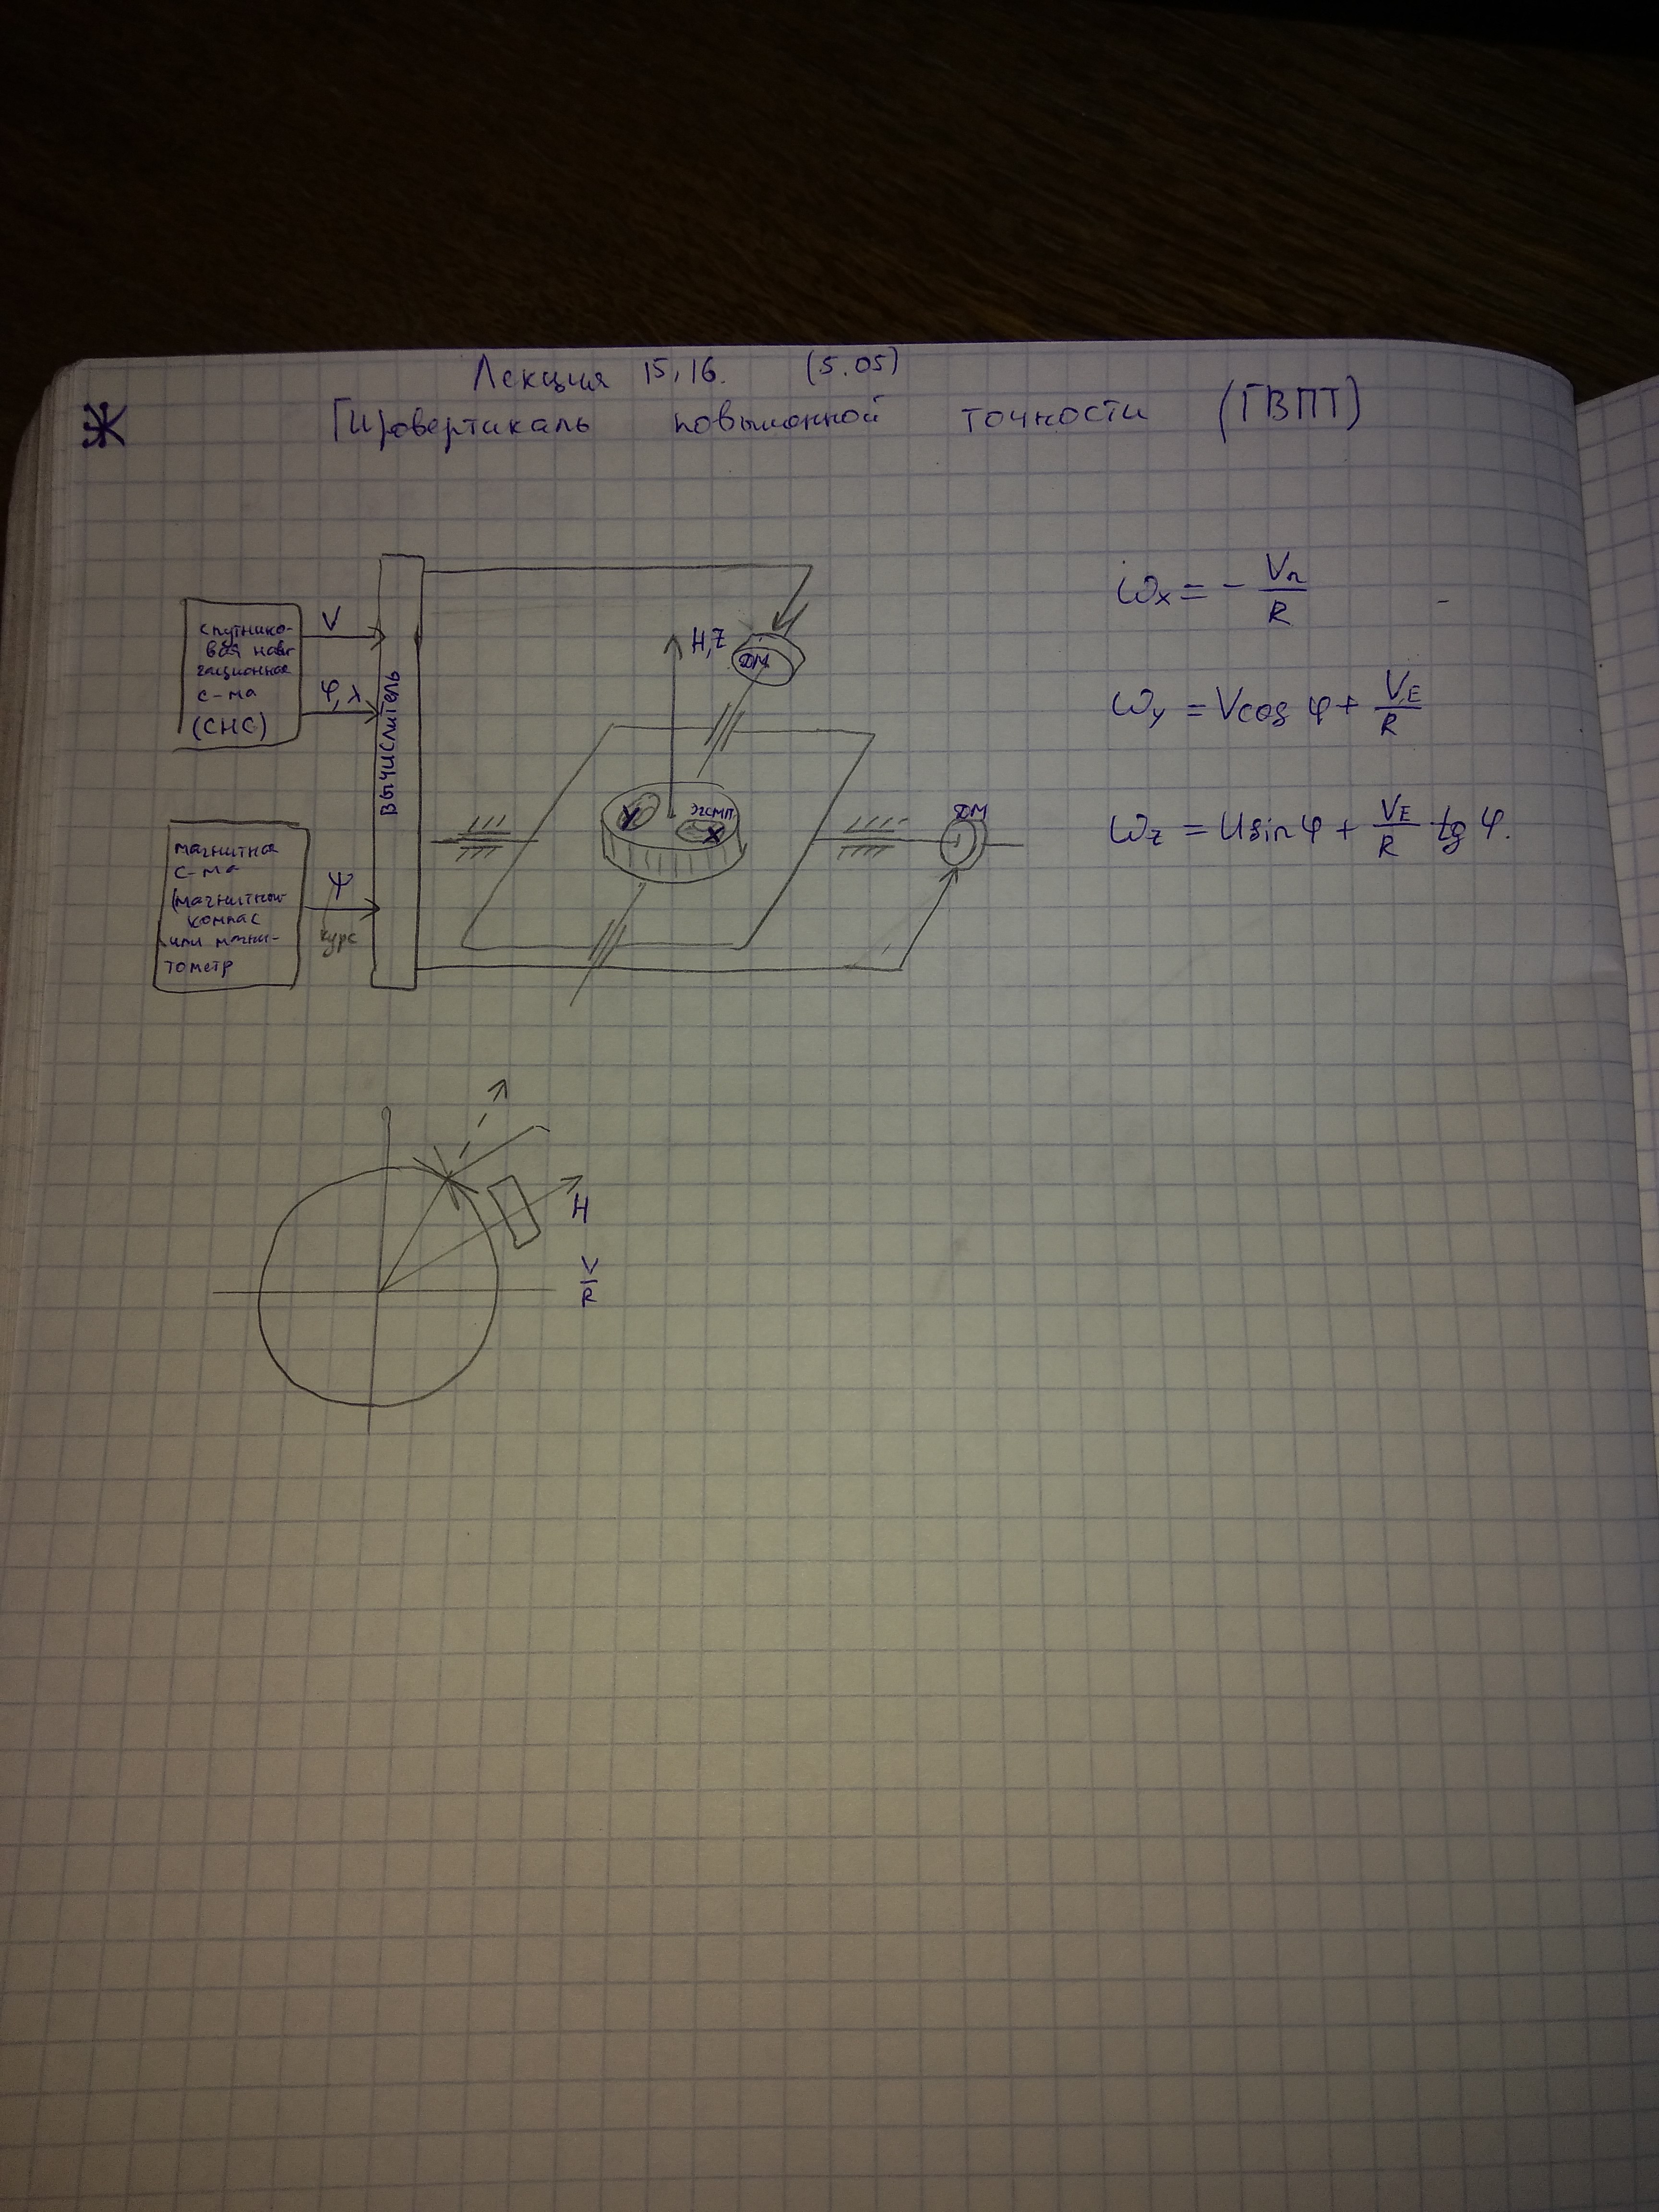 Лекция 15,16. (5.05)
Ж Гировертикаль повышенной точности (ГВПТ)
спутнико-
вая нави
гационная
с-ма
(СНС)
V
φ, λ
вычислитель
H,Z
ДМ
Y
X
ДМ
магнитная
с-ма
(магнитный
компас
или магни-
тометр
ψ
курс
ωx = - Vn/R
ωy = Vcos φ + VE/R
ωz = Usin φ + VE/R tg φ.
H
V/R